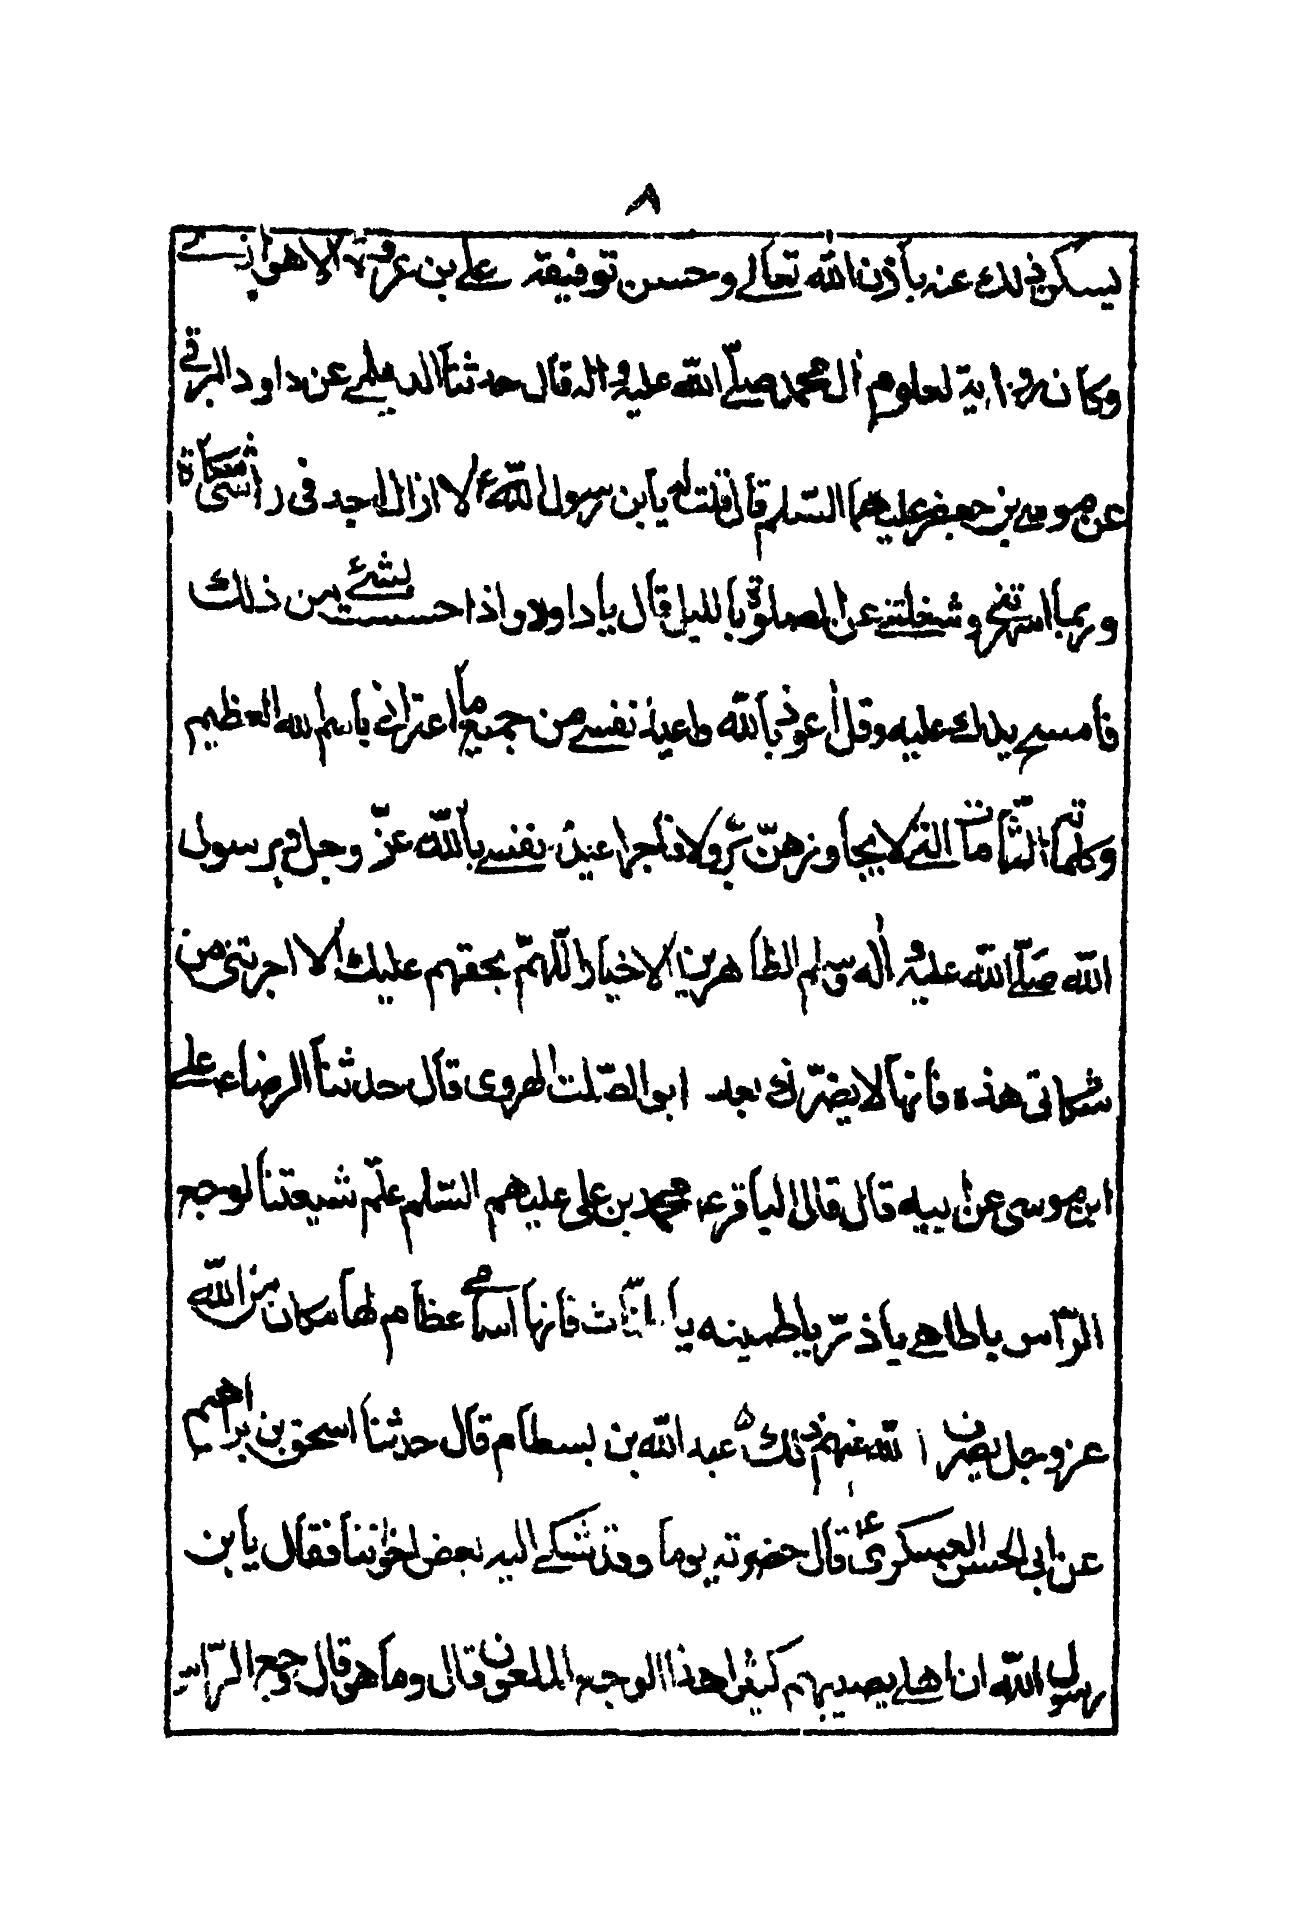 ٨
يسكن ذلك عنه بأذن الله تعالى وحسن توفيقه علي بن عروة الاهوازي
وكان رواية لعلوم ال محمد صلّى الله عليه واله قال حدثنا الديلمي عن داود الرقي
عن موسى بن جعفر عليهما السّلم قال قلت له يا بن رسول اللّه لا ازال اجد في راسي شكاة
وربما اسهرتني وشغلتني عن الصلوة بالليل قال يا داود واذا احسست بشئ من ذلك
فامسح يدك عليه وقل اعوذ باللّه واعيذ نفسي من جميع ما اعتراني باسم الله العظيم
وكلماته التّامات التي لا يجاوزهن بّر ولا فاجر اعيذ نفسي باللّه عزّ وجل وبرسول
الله صلّى الله عليه واله وسلم الطاهرين الاخيار اللّهمّ بحقهم عليك الا اجرتني من
شكاتي هذه فأنها لا يضرّك بعد ابو الصّلت الهروي قال حدثنا الرضا ع علي
ابن موسى عن ابيه قال قال الباقر ع محمد بن علي عليهم السّلم علّم شيعتنا لوجع
الرّاس يا طاهي يا ذرّ يا طمينه يا ث فأنها اسامي عظام لها مكان من اللّه
عز وجل يصرف اللّه عنهم ذلك ۵ عبد اللّه بن بسطام قال حدثنا اسحق بن ابراهيم
عن ابي الحسن العسكري ع قال حضرته يوما وقد شكى اليه بعض اخواننا فقال يا بن
رسول اللّه ان اهلي يصيبهم كثيرا هذا الوجع الملعون قال وما هو قال وجع الرّاس